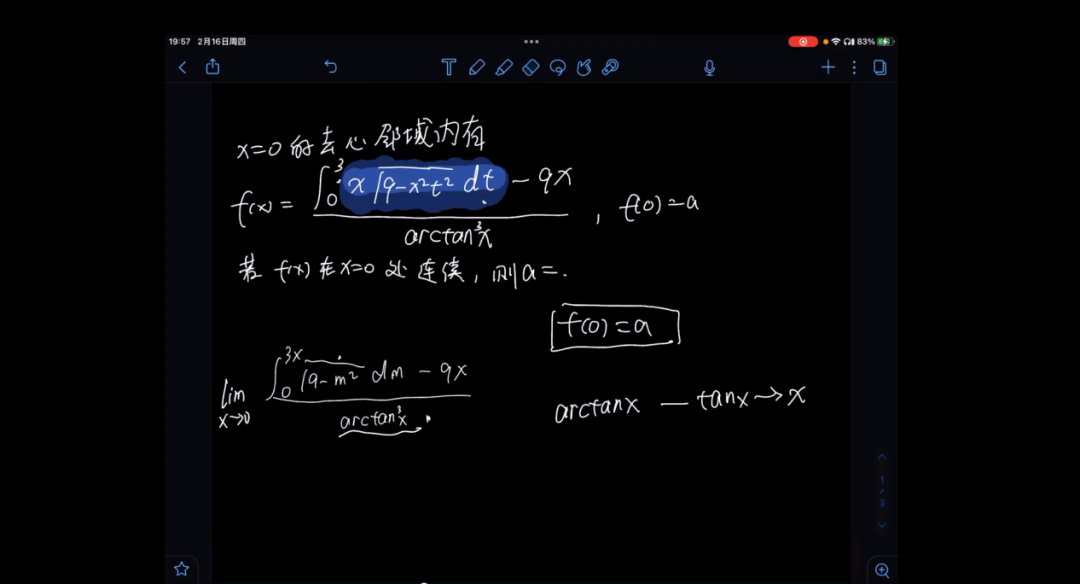 19:57 2月16日周四
83%
x=0 的去心邻域内有
f(x) = (∫₀³ x√(9-x²t²) dt - 9x) / arctan³x , f(0)=a
若 f(x) 在 x=0 处 连续, 则 a=.
f(0)=a
lim x→0 (∫₀^(3x) √(9-m²) dm - 9x) / arctan³x
arctanx — tanx → x
1
/
3